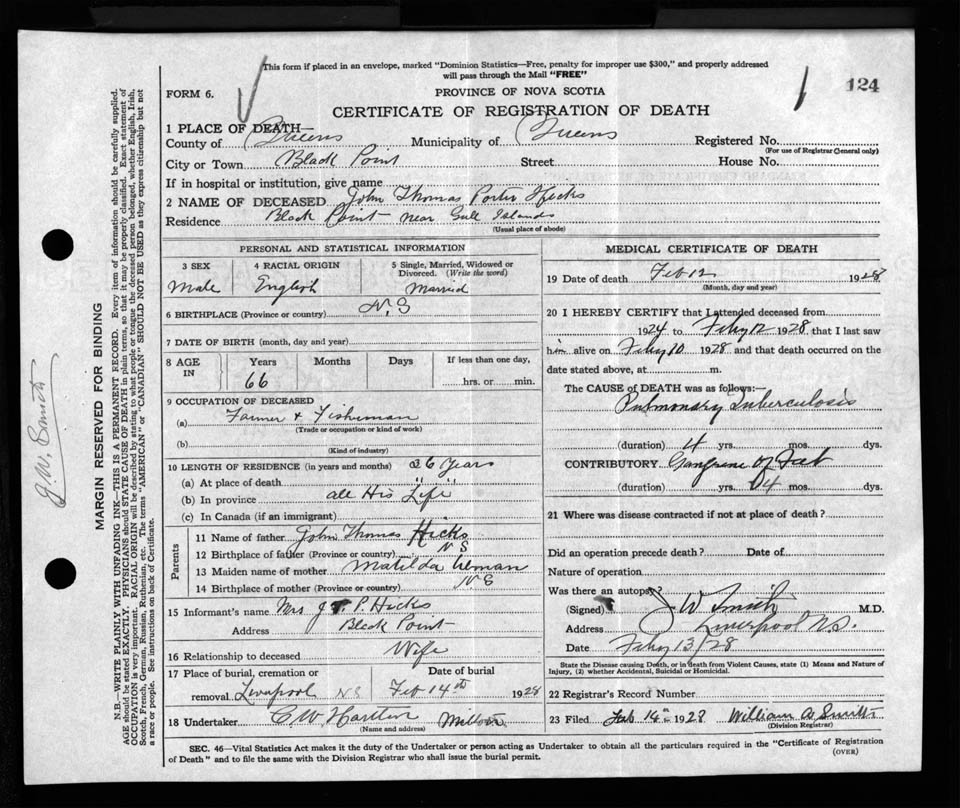 This form if placed in an envelope, marked "Dominion Statistics—Free, penalty for improper use $300," and properly addressed
will pass through the Mail "FREE"
124
FORM 6.
PROVINCE OF NOVA SCOTIA
CERTIFICATE OF REGISTRATION OF DEATH
1 PLACE OF DEATH—
County of Queens Municipality of Queens Registered No.
(For use of Registrar General only)
City or Town Black Point Street House No.
If in hospital or institution, give name
2 NAME OF DECEASED John Thomas Porter Hicks
Residence Black Point near Gull Islands
(Usual place of abode)
PERSONAL AND STATISTICAL INFORMATION
3 SEX 4 RACIAL ORIGIN 5 Single, Married, Widowed or
Divorced. (Write the word)
Male English Married
6 BIRTHPLACE (Province or country) N.S
7 DATE OF BIRTH (month, day and year)
8 AGE IN Years Months Days If less than one day,
66 hrs. or min.
9 OCCUPATION OF DECEASED
(a) Farmer & Fisherman
(Trade or occupation or kind of work)
(b)
(Kind of industry)
10 LENGTH OF RESIDENCE (in years and months) 26 Years
(a) At place of death " "
(b) In province all His Life
(c) In Canada (if an immigrant)
Parents
11 Name of father John Thomas Hicks
12 Birthplace of father (Province or country) N S
13 Maiden name of mother Matilda
14 Birthplace of mother (Province or country) N.S
15 Informant's name Mrs J T. P. Hicks
Address Black Point
16 Relationship to deceased Wife
17 Place of burial, cremation or Date of burial
removal Liverpool N S Feb 14th 1928
18 Undertaker C W Milton
(Name and address)
MEDICAL CERTIFICATE OF DEATH
19 Date of death Feb 12 1928
(Month, day and year)
20 I HEREBY CERTIFY that I attended deceased from
1924 to Feby 12 1928 that I last saw
him alive on Feby 10 1928 and that death occurred on the
date stated above, at m.
The CAUSE OF DEATH was as follows:—
Pulmonary Tuberculosis
(duration) 4 yrs. mos. dys.
CONTRIBUTORY Gangrene of Feet
(duration) yrs. 4 mos. dys.
21 Where was disease contracted if not at place of death?
Did an operation precede death? Date of
Nature of operation
Was there an autopsy?
(Signed) J W Smith M.D.
Address Liverpool N.S.
Date Feby 13/28
State the Disease causing Death, or in death from Violent Causes, state (1) Means and Nature of
Injury, (2) whether Accidental, Suicidal or Homicidal.
22 Registrar's Record Number
23 Filed Feb 14th 1928 William A Smith
(Division Registrar)
SEC. 46—Vital Statistics Act makes it the duty of the Undertaker or person acting as Undertaker to obtain all the particulars required in the "Certificate of Registration
of Death" and to file the same with the Division Registrar who shall issue the burial permit.
(OVER)
J. W. Smith
MARGIN RESERVED FOR BINDING
N.B.—WRITE PLAINLY WITH UNFADING INK—THIS IS A PERMANENT RECORD. Every item of information should be carefully supplied.
AGE should be stated EXACTLY. PHYSICIANS should STATE CAUSE OF DEATH in plain terms, so that it may be properly classified. Exact statement of
OCCUPATION is very important. RACIAL ORIGIN will be described by stating to what people or tongue the deceased person belonged, whether English, Irish,
Scotch, French, German, Russian, Ruthenian, etc. The terms "AMERICAN" or "CANADIAN" SHOULD NOT BE USED as they express citizenship but not
a race or people. See instructions on back of Certificate.